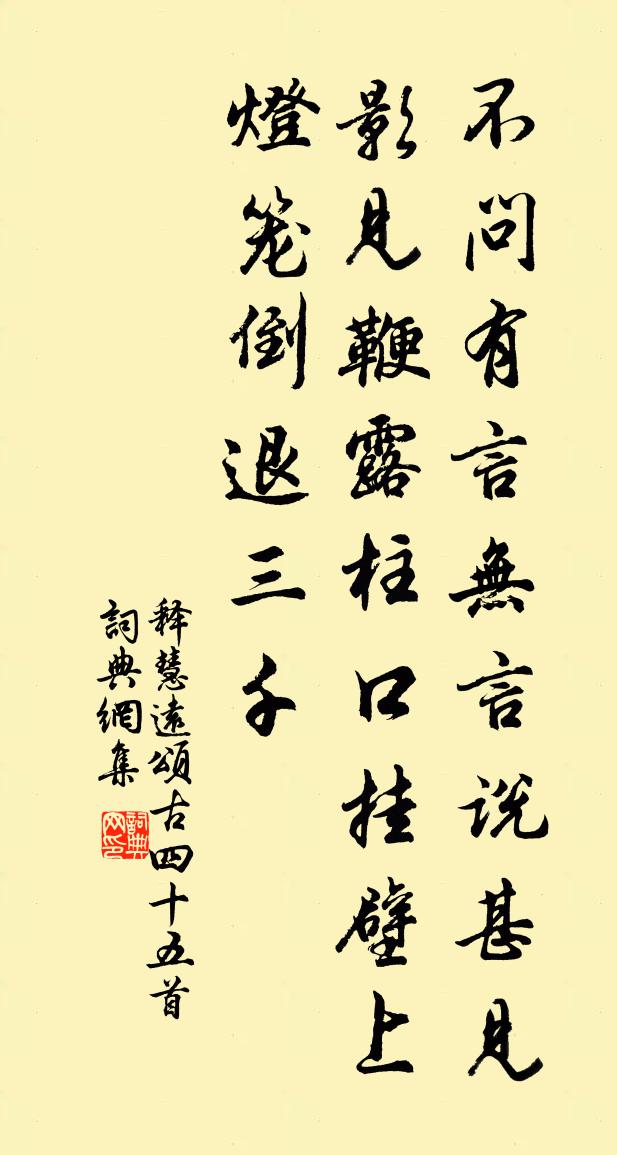 不问有言無言説甚見
影見鞭露柱口挂壁上
燈笼倒退三千
释慧遠頌古四十五首
詞典網集
詞典网印